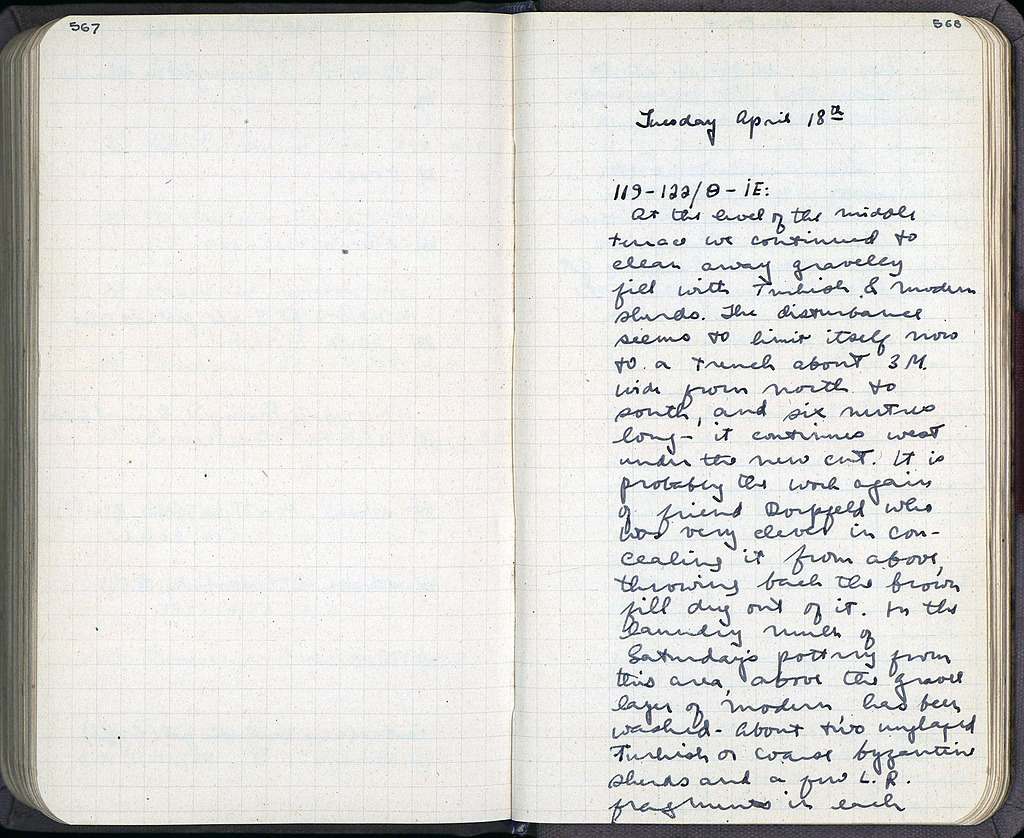 567
568
Tuesday April 18th
119-122/Θ-ΙΕ:
At the level of the middle
terrace we continued to
clean away graveley
fill with Turkish & modern
sherds. The disturbance
seems to limit itself now
to a trench about 3 M.
wide from north to
south, and six metres
long - it continues west
under the new cut. It is
probably the work again
of friend Dorpfeld who
was very clever in con-
cealing it from above,
throwing back the brown
fill dug out of it. In the
laundry much of
Saturday's pottery from
this area, above the gravel
layer of modern has been
washed - About two unglazed
Turkish or coarse byzantine
sherds and a few L.R.
fragments in each